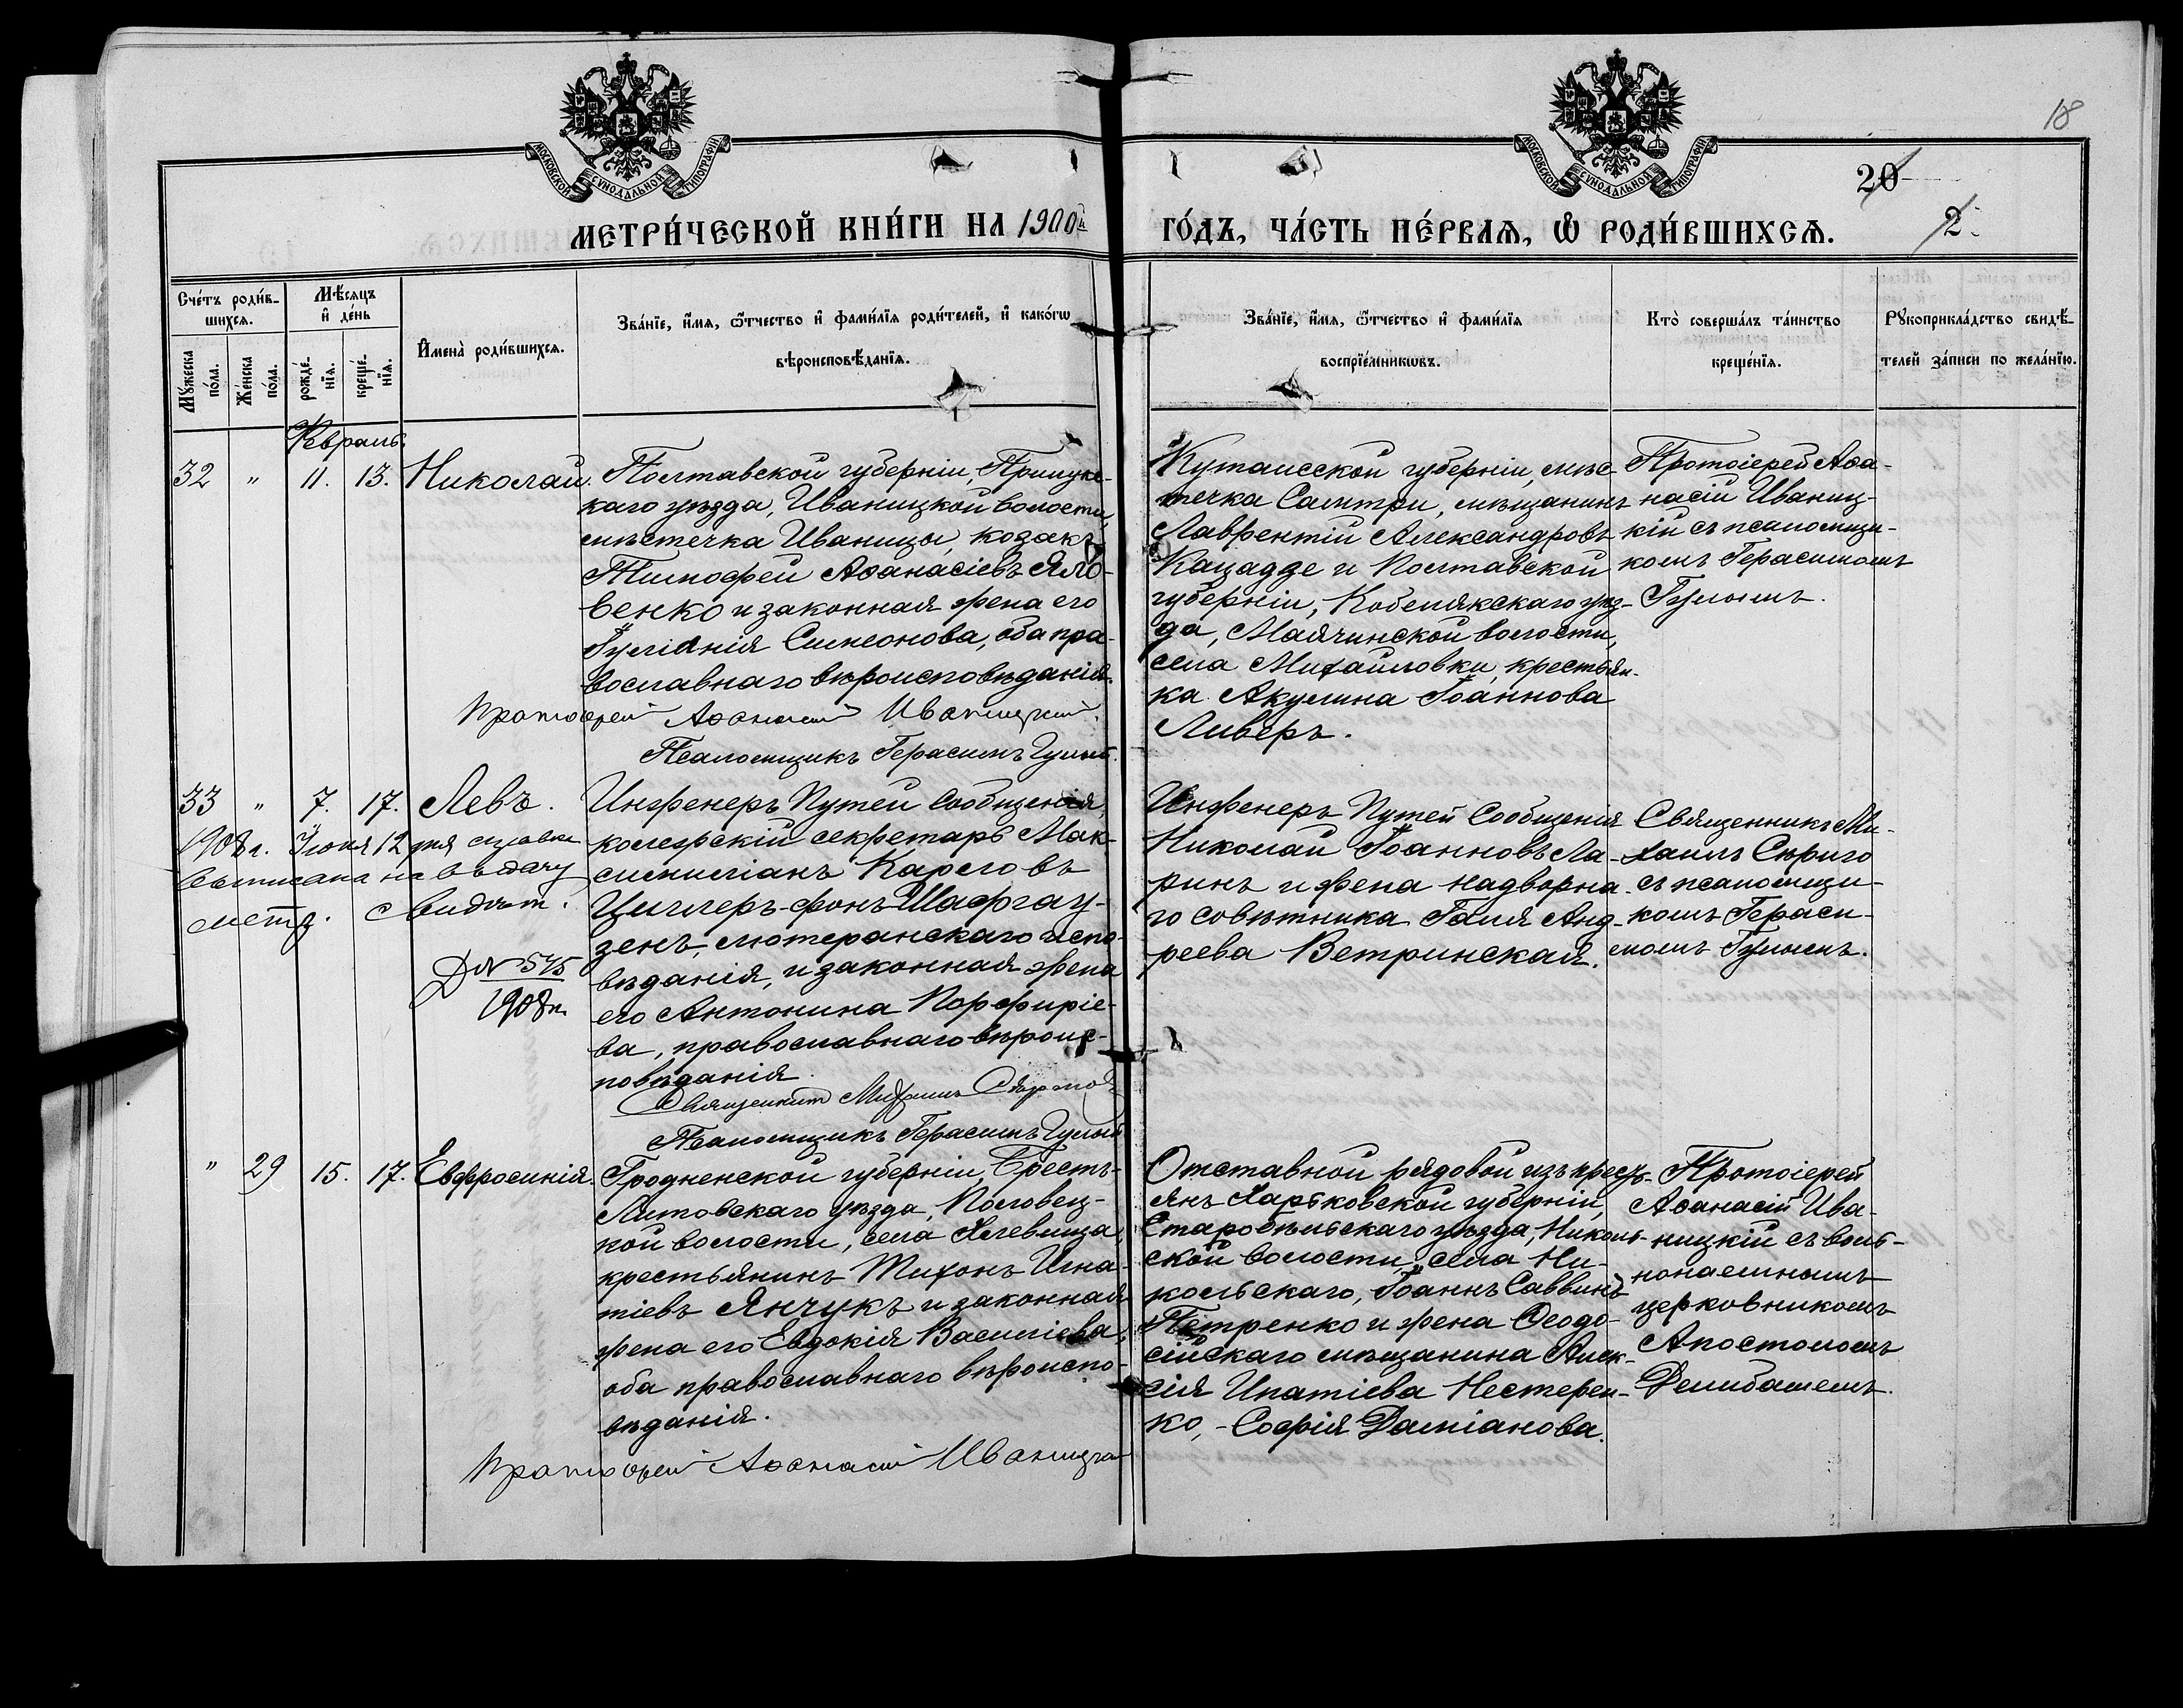 МОСКОВСКОЙ СѴНОДАЛЬНОЙ ТИПОГРАФІИ
МОСКОВСКОЙ СѴНОДАЛЬНОЙ ТИПОГРАФІИ
18
20
2.
МЕТРИ́ЧЕСКОЙ КНИ́ГИ НА 1900й
ГО́ДЪ, ЧА́СТЬ ПЕ́РВАѦ, Ѡ РОДИ́ВШИХСѦ.
Сче́тъ роди́в-
шихсѧ.
Мѣ́сѧцъ
и҆ де́нь
Мꙋ́жеска по́ла.
Же́нска по́ла.
рожде́-
нїѧ.
креще́-
нїѧ.
И҆мена̀ роди́вшихсѧ.
Зва́нїе, и҆́мѧ, ѻ҆́тчество и҆ фами́лїѧ роди́телей, и҆ како́гѡ
вѣроисповѣ́данїѧ.
Зва́нїе, и҆́мѧ, ѻ҆́тчество и҆ фами́лїѧ
воспрїе́мникѡвъ.
Кто̀ соверша́лъ та́инство
креще́нїѧ.
Рꙋкоприкла́дство свидѣ́-
телей за́писи по жела́нїю.
Февраль.
32 " 11. 13. Николай.
Полтавской губерніи, Прилукс-
каго уѣзда, Иваницкой волости,
мѣстечка Иваницы, козакъ
Тимофей Аѳанасіевъ Яло-
венко и законная жена его
Іуліанія Симеонова, оба пра-
вославнаго вѣроисповѣданія.
Протоіерей Аѳанасій Иваницкій.
Псаломщикъ Герасимъ Гулый.
Кутаисской губерніи, мѣс-
течка Самтри, мѣщанинъ
Лаврентій Александровъ
Кацадзе и Полтавской
губерніи, Кобелякскаго уѣз-
да, Маячинской волости,
села Михайловки, крестьян-
ка Акулина Іоаннова
Ливеръ.
Протоіерей Аѳа-
насій Иваниц-
кій съ псаломщи-
комъ Герасимомъ
Гулымъ.
33 " 7. 17. Левъ.
1908 г. Іюня 12 дня справка
выписана на выдачу
метр. свидѣт.
Д № 545
1908 г.
Инженеръ Путей Сообщенія,
коллежскій секретарь Мак-
симиліанъ Карловъ
Циллеръ-фонъ-Шафгау-
зенъ, лютеранскаго испо-
вѣданія, и законная жена
его Антонина Порфиріе-
ва, православнаго вѣроис-
повѣданія.
Священникъ Михаилъ Сѣриго
Псаломщикъ Герасимъ Гулый
Инженеръ Путей Сообщенія
Николай Іоанновъ Ла-
ринъ и жена надворна-
го совѣтника Галя Анд-
реева Ветринская.
Священникъ Ми-
хаилъ Сѣриго
съ псаломщи-
комъ Гераси-
момъ Гулымъ.
" 29 15. 17. Евфросинія.
Гродненской губерніи, Брестъ-
Литовскаго уѣзда, Половец-
кой волости, села Хлевища,
крестьянинъ Тихонъ Игна-
тіевъ Янчукъ и законная
жена его Евдокія Василіева,
оба православнаго вѣроиспо-
вѣданія.
Протоіерей Аѳанасій Иваницкій
Отставной рядовой изъ крест-
янъ Харьковской губерніи,
Старобѣльскаго уѣзда, Николь-
ской волости, села Ни-
кольскаго, Іоаннъ Саввинъ
Петренко и жена Ѳеодо-
сійскаго мѣщанина Алек-
сія Ипатіева Нестерен-
ко, - Софія Даміанова.
Протоіерей
Аѳанасій Ива-
ницкій съ воль-
нонаемнымъ
церковникомъ
Апостоломъ
Делибашемъ.